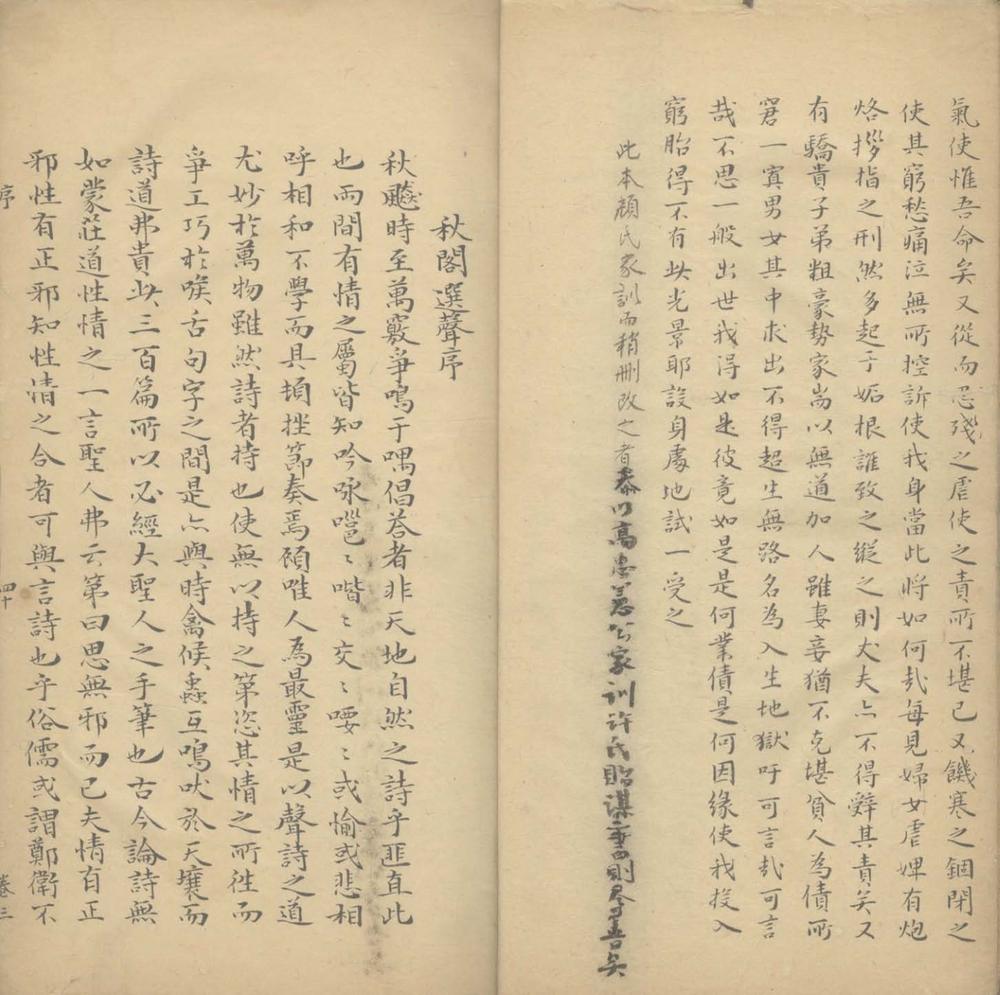 氣使惟吾命矣又從而忍殘之虐使之責所不堪已又饑寒之錮閉之
使其窮愁痛泣無所控訴使我身當此將如何哉每見婦女虐婢有炮
烙拶指之刑然多起于妬根誰致之縱之則丈夫亦不得辭其責矣又
有驕貴子弟粗豪勢家耑以無道加人雖妻妾猶不克堪貧人為債所
窘一寘男女其中求出不得超生無路名為入生地獄吁可言哉可言
哉不思一般出世我得如是彼竟如是是何業債是何因緣使我投入
窮胎得不有此光景耶設身處地試一受之
此本顏氏家訓而稍刪改之者叅以高忠憲公家訓許氏貽謀 則尽善矣
秋閣選聲序
秋飈時至萬竅爭鳴于喁倡荅者非天地自然之詩乎匪直此
也兩間有情之屬皆知吟咏嗈〻喈〻交〻喓〻或愉或悲相
呼相和不學而具頓挫節奏焉顧唯人為最靈是以聲詩之道
尤妙於萬物雖然詩者持也使無以持之第恣其情之所徃而
爭工巧於喉舌句字之間是亦與時禽候蟲互鳴吠於天壤而
詩道弗貴此三百篇所以必經大聖人之手筆也古今論詩無
如蒙莊道性情之一言聖人弗云第曰思無邪而已夫情有正
邪性有正邪知性情之合者可與言詩也乎俗儒或謂鄭衛不
序
四十
卷三